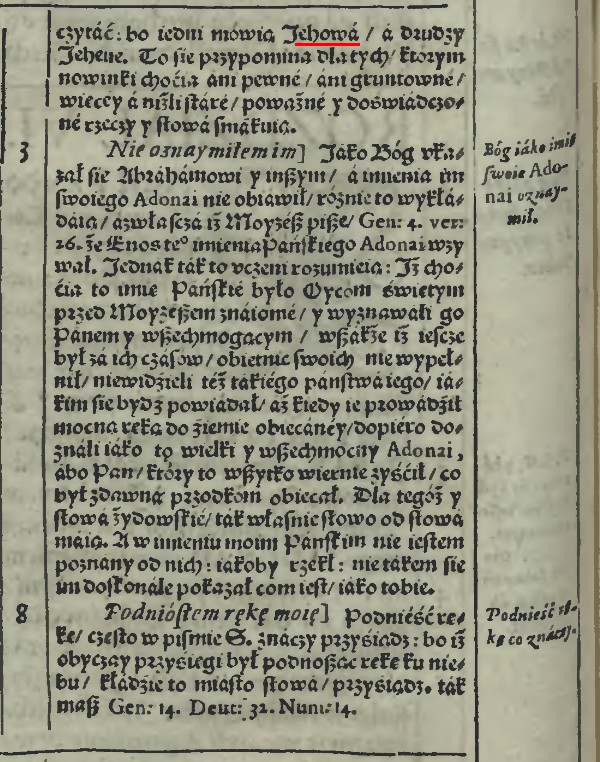 czytáć: bo iedni mówią Jehowá / á drudzy
Jeheue. To sie przypomina dla tych / którym
nowinki chocia ani pewné / áni gruntowné /
wiecey á niżli stáré / poważné y doświádczo-
né rzeczy y słowá smákuią.
3
Nie oznaymiłem im] Jáko Bóg vka-
zał sie Abráhámowi y inszym / á imienia im
swoiego Adonai nie obiawił / różnie to wykłá-
dáią / azwłaszczá iż Moyżész pisze / Gen: 4. ver:
26. że Enos teº imienia Páńskiego Adonai wzy
wał. Jednák ták to vczeni rozumieią: Iż cho-
ćia to imię Páńskié było Oycom świętym
przed Moyżeszem znáiomé / y wyznawáli go
Pánem y wszechmogącym / wszákże iż iescze
był zá ich czásów / obietnic swoich nie wypeł-
nił / niewidzieli téż tákiégo páństwá iego / iá-
kim sie bydź powiádał / áż kiedy ie prowádził
mocną ręką do źiemie obiecánéy / dopiéro do-
ználi iáko to wielki y wszechmocny Adonai,
ábo Pan / który to wszytko wiernie ziścił / co
był zdawná przodkom obiecał. Dla tegóż y
słowá żydowskié / ták własnie słowo od słowá
máią. A w imieniu moim Páńskim nie iestem
poznány od nich: iákoby rzekł: nie tákem sie
im doskonále pokazał com iest / iáko tobie.
Bóg iáko imię
swoie Ado-
nai oznay-
mił.
8
Podniósłem rękę moię] Podnieść rę-
kę / często w piśmie S. znáczy przysiądz: bo iż
obyczay przysięgi był podnosząc rękę ku nie-
bu / kłádzie to miásto słowá / przysiądz. ták
masz Gen: 14. Deut: 32. Num: 14.
Podnieść rę-
kę co znáczy.